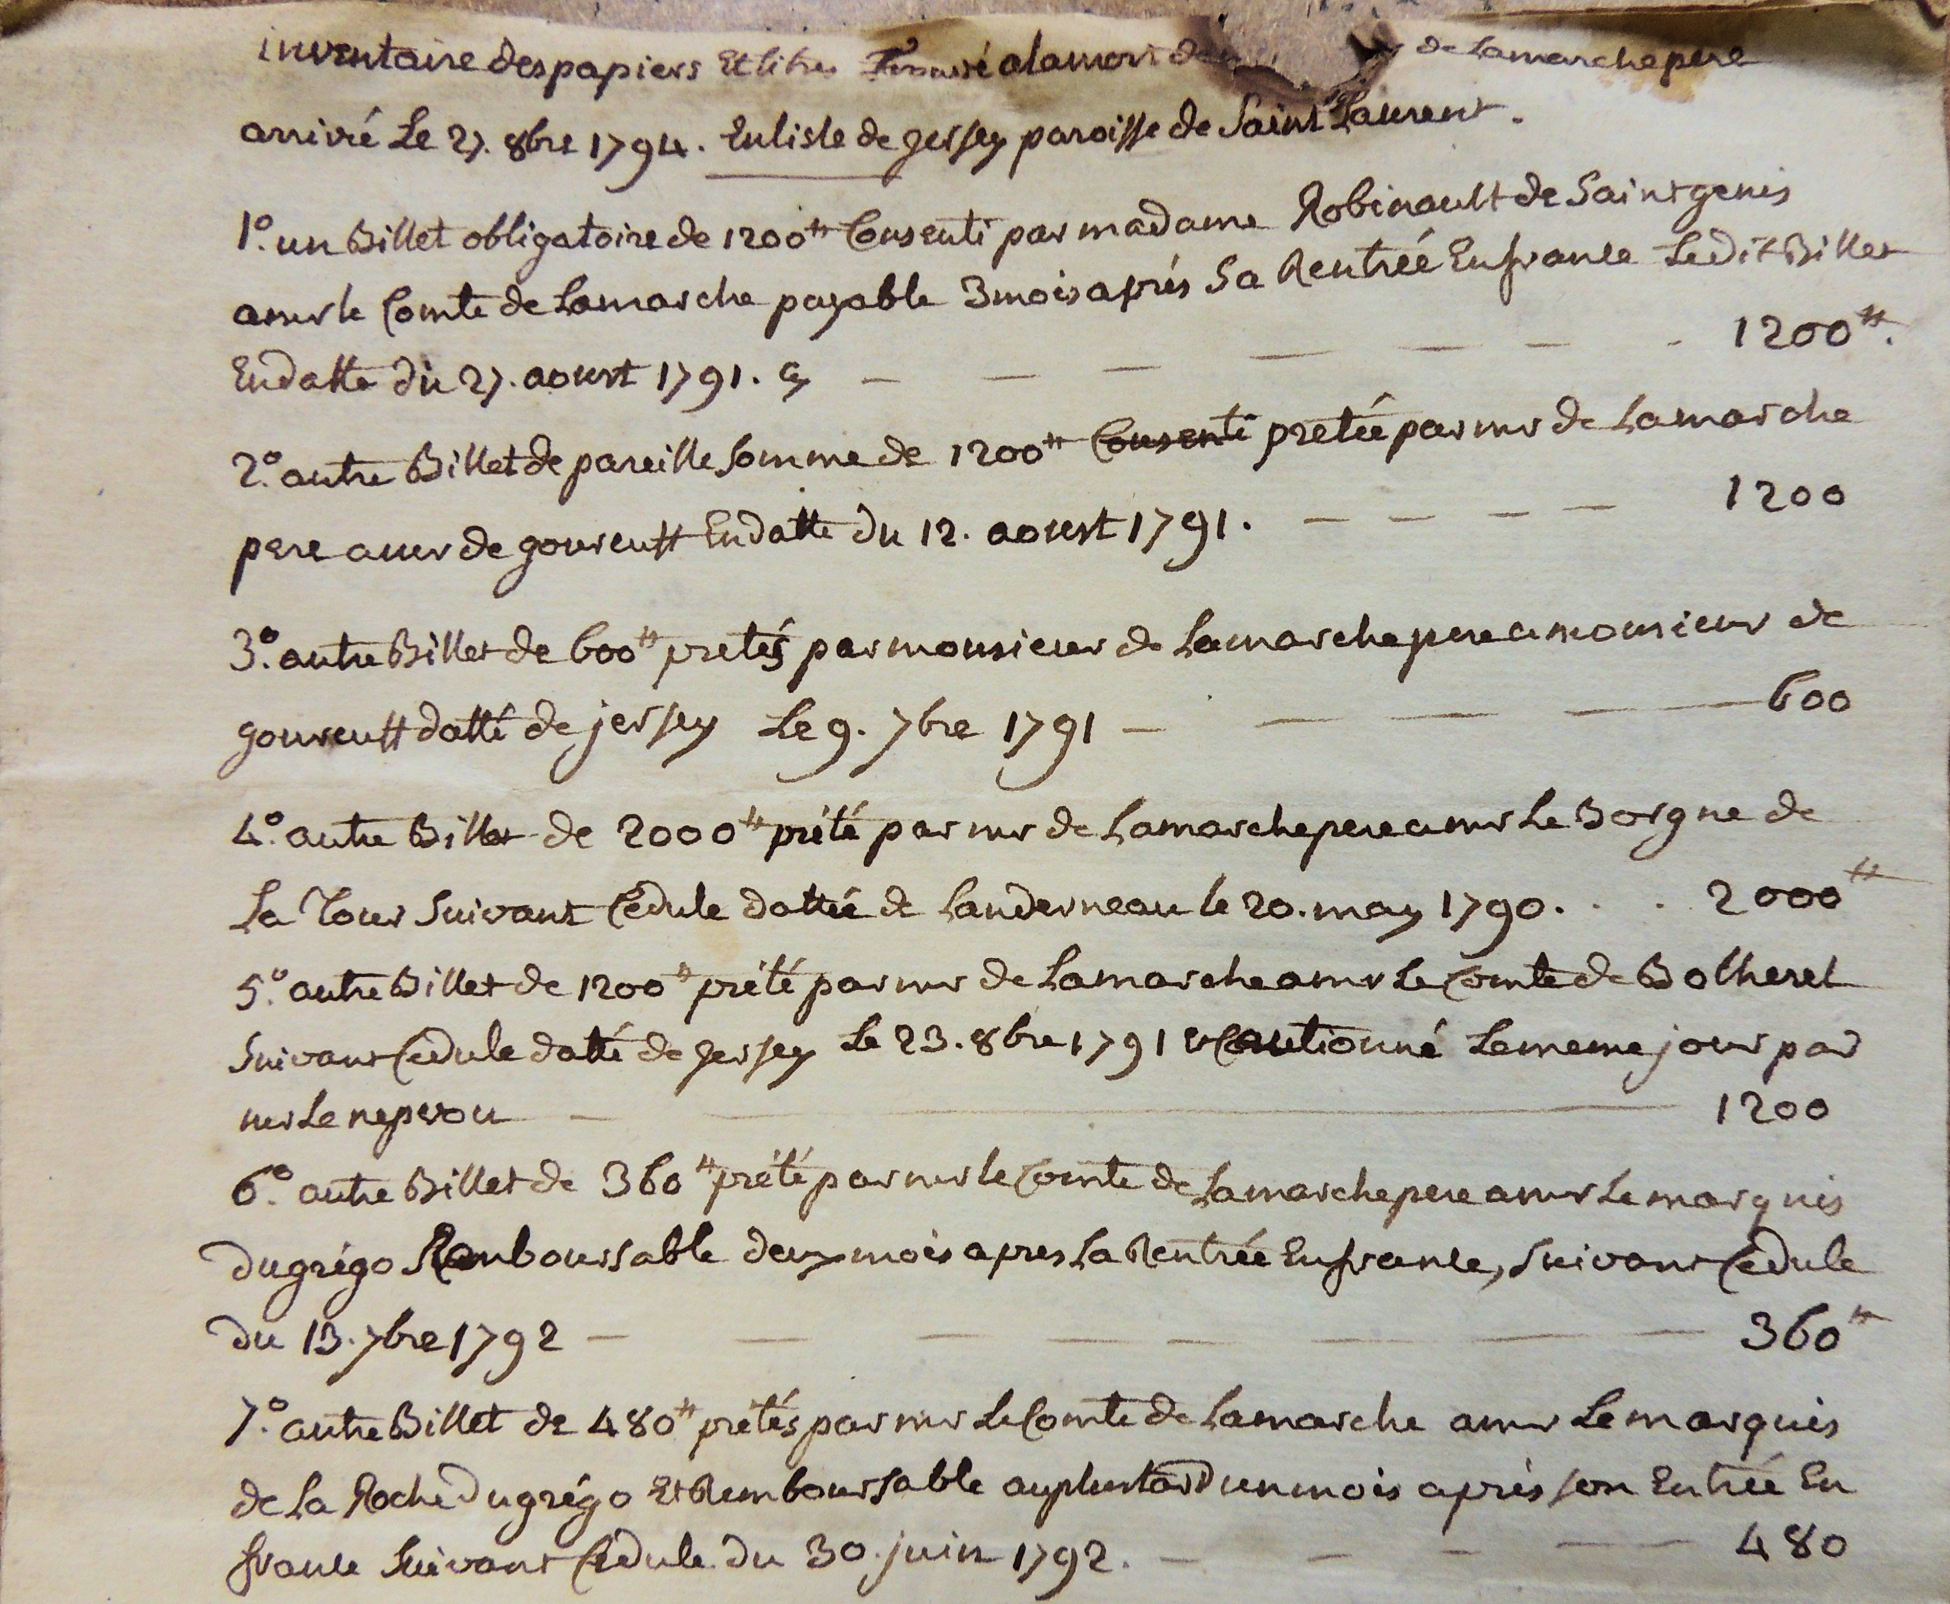 inventaire des papiers Et titres Trouvé a la mort de de Lamarche pere
arrivé Le 27. 8bre 1794. En lisle de jersey paroisse de Saint Laurent.
1°. un Billet obligatoire de 1200tt Consenti par madame Robinault de Saint genis
a mr le Comte de Lamarche payable 3 mois aprés Sa Rentréé En france Le dit Billet
En datte du 27. aoust 1791. cy — — — — — — - 1200tt.
2°. autre Billet de pareille Somme de 1200tt Consenti pretéé par mr de Lamarche
pere a mr de gouvenst En datte du 12. aoust 1791. — — — — 1200
3°. autre Billet de 600tt pretés par monsieur de Lamarche pere a monsieur de
gouvenst datté de jersey Le 9. 7bre 1791 — — — — 600
4°. autre Billet de 2000tt prété par mr de Lamarche pere a mr Le Borgne de
La Tour Suivant Cédule dattéé de Landerneau le 20. may 1790. . . 2000tt
5°. autre Billet de 1200tt prété par mr de Lamarche a mr Le Comte de Botherel
Suivant Cedule datté de jersey Le 23. 8bre 1791 et Cautionné Le meme jour par
mr Le nepvou — — 1200
6°. autre Billet de 360tt prété par mr le Comte de Lamarche pere a mr Le marquis
Dugrégo Remboursable deux mois apres La Rentréé En france, Suivant Cedule
du 13. 7bre 1792 — — — — — — — 360tt
7°. autre Billet de 480tt prétés par mr Le Comte de Lamarche a mr Le marquis
de La Roche Dugrégo Et Remboursable au plustard un mois aprés son Entréé En
france Suivant Cedule du 30. juin 1792. — — — — 480